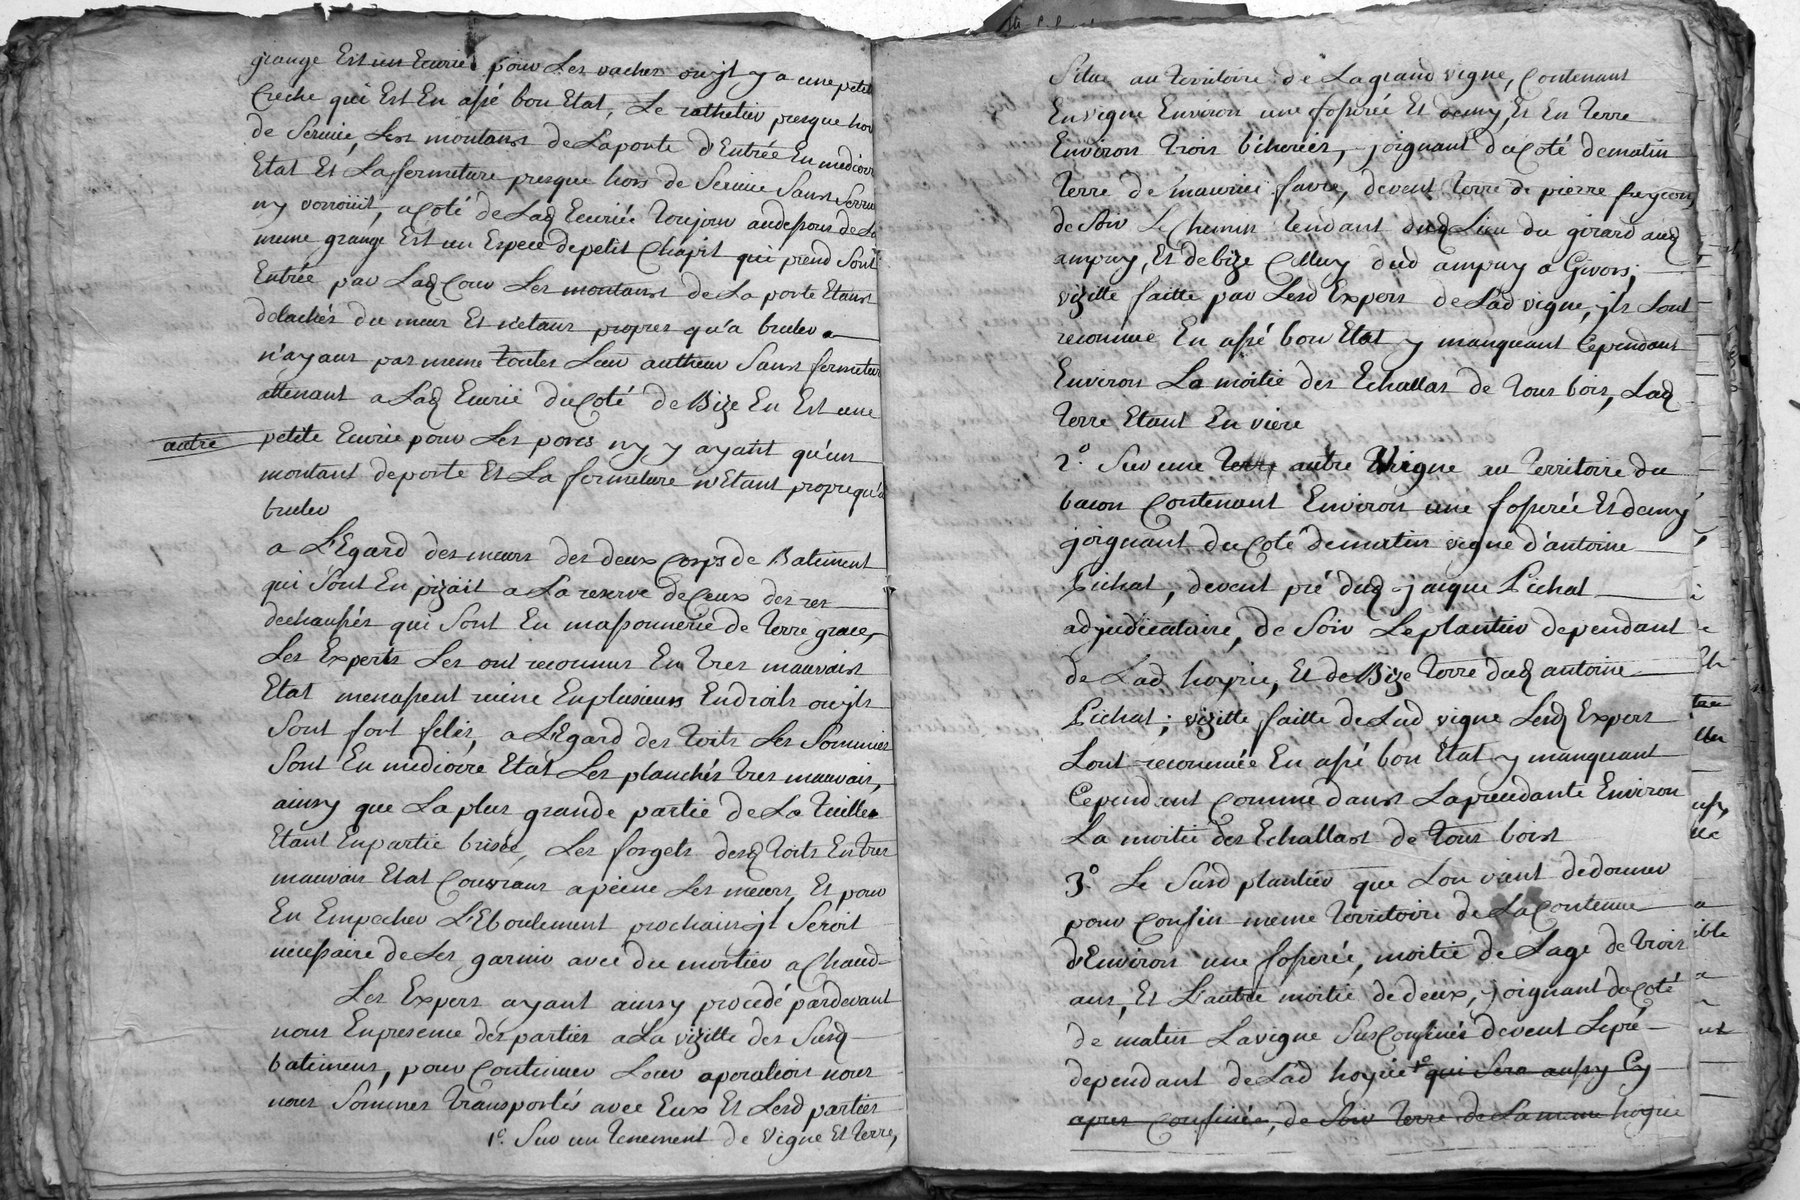 grange Est un Ecurie pour Les vaches ou jl y a une petite
Creche qui Est En assé bon Etat, Le rathelier presque hor
de Service, Les montans de La porte d'Entrée En mediocre
Etat Et La fermeture presque hors de Service Sans Serrure
ny verrouit, a Coté de Lad Ecurie toujour audessous de La
meme grange Est un Espece de petit Chapit qui prend Sont
Entrée par Lad Cour Les montans de La porte Etans
detachés du meur Et n'etans propres qu'a bruler
n'ayans pas meme toutes Leur autheur Sans fermeture
attenant a Lad Ecurie du Coté de Bize En Est une
autre petite Ecurie pour Les porcs n'y y ayant qu'un
montant de porte Et La fermeture n'Etant propre qu'a
bruler
a L'Egard des meurs des deux Corps de Batiment
qui Sont En pizait a La reserve de Ceux des res
dechaussés qui Sont En massonnerie de terre grace,
Les Experts Les ont reconnus En tres mauvais
Etat menassent ruine En plusieurs Endroits ou jls
Sont fort felés, a L'Egard des toits Les Sommies
Sont En mediocre Etat Les planchés tres mauvais,
ainsy que La plus grande partie de La tuille
Etant En partie brisée, Les forgets desd toits En tres
mauvais Etat Couvrans a peine Les meurs, Et pour
En Empecher L'Eboulement prochain jl Seroit
necessaire de Les garnir avec du mortier a Chaud
Les Expers ayant ainsy procedé pardevant
nous En presence des parties a La vizitte des Susd
batimens, pour Continuer Leur operation nous
nous Sommes transportés avec Eux Et Lesd parties
1o. Sur un tenement de vigne Et terre,
Situé au territoire de La grand vigne, Contenant
En vigne Environ une fosserée Et demy, Et En terre
Environ trois bicherées, joignant du Coté de matin
terre de maurice favre, devent terre de pierre freycon,
de Soir Le Chemin tendant dud Lieu du girard aud
ampuy, Et de bize Celluy dud ampuy a Givors,
vizitte faitte par Lesd Expers de Lad vigne, jls Lont
reconnue En assé bon Etat y manquant Cependant
Environ La moitié des Echallas de tous bois, Lad
terre Etant En viere
2o. Sur une terre autre Vigne au territoire du
baron Contenant Environ une fosserée Et demy
joignant du Coté de matin vigne d'antoine
Pichat, devent pré dud jacque Pichat
adjudicataire, de Soir Le plantier dependant
de Lad hoyrie, Et de Bize terre dud antoine
Pichat; vizitte faitte de Lad vigne Lesd Expers
Lont reconnuée En assé bon Etat y manquant
Cependant Comme dans La precedante Environ
La moitié des Echallas de tous bois
3o. Le Susd plantier que Lon vient de donner
pour Confin meme territoire de La Contenue
d'Environ une fosserée, moitié de Lage de trois
ans, Et L'autre moitié de deux, joignant du Coté
de matin La vigne Sus Confinée devent Le pré
dependant de Lad hoyrie qui Sera aussy Cy
apres Confinée, de Soir terre de La meme hoyrie